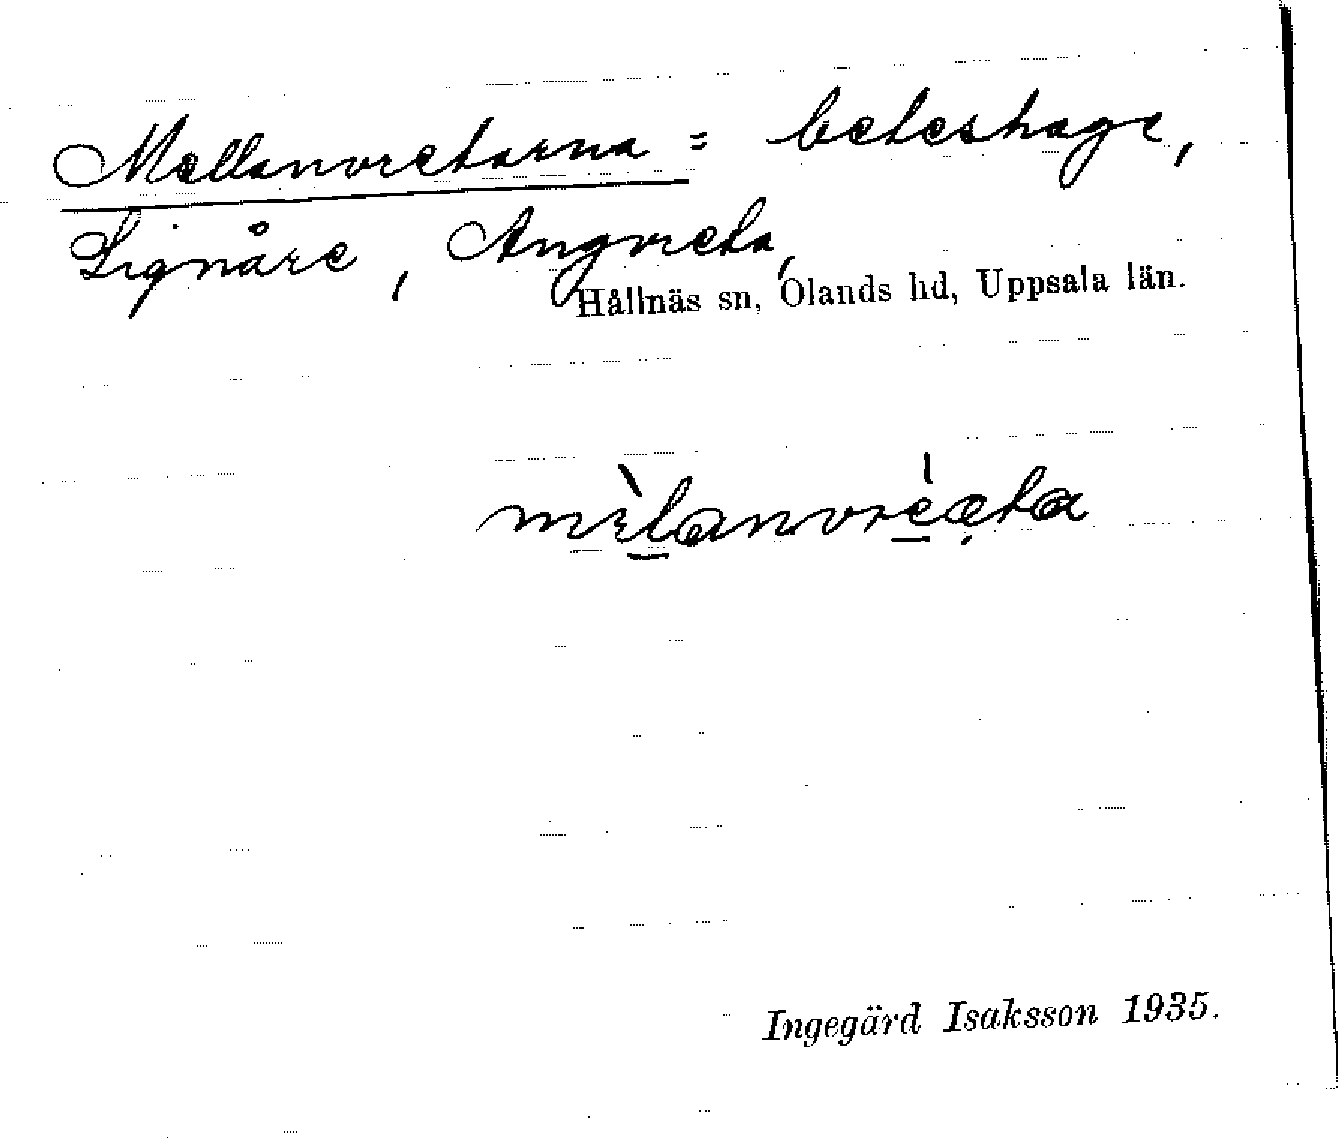 Mellanvretarna = beteshage,
Lignåre, Ängvreta,
Hållnäs sn, Olands hd, Uppsala län.
Ingegärd Isaksson 1935.